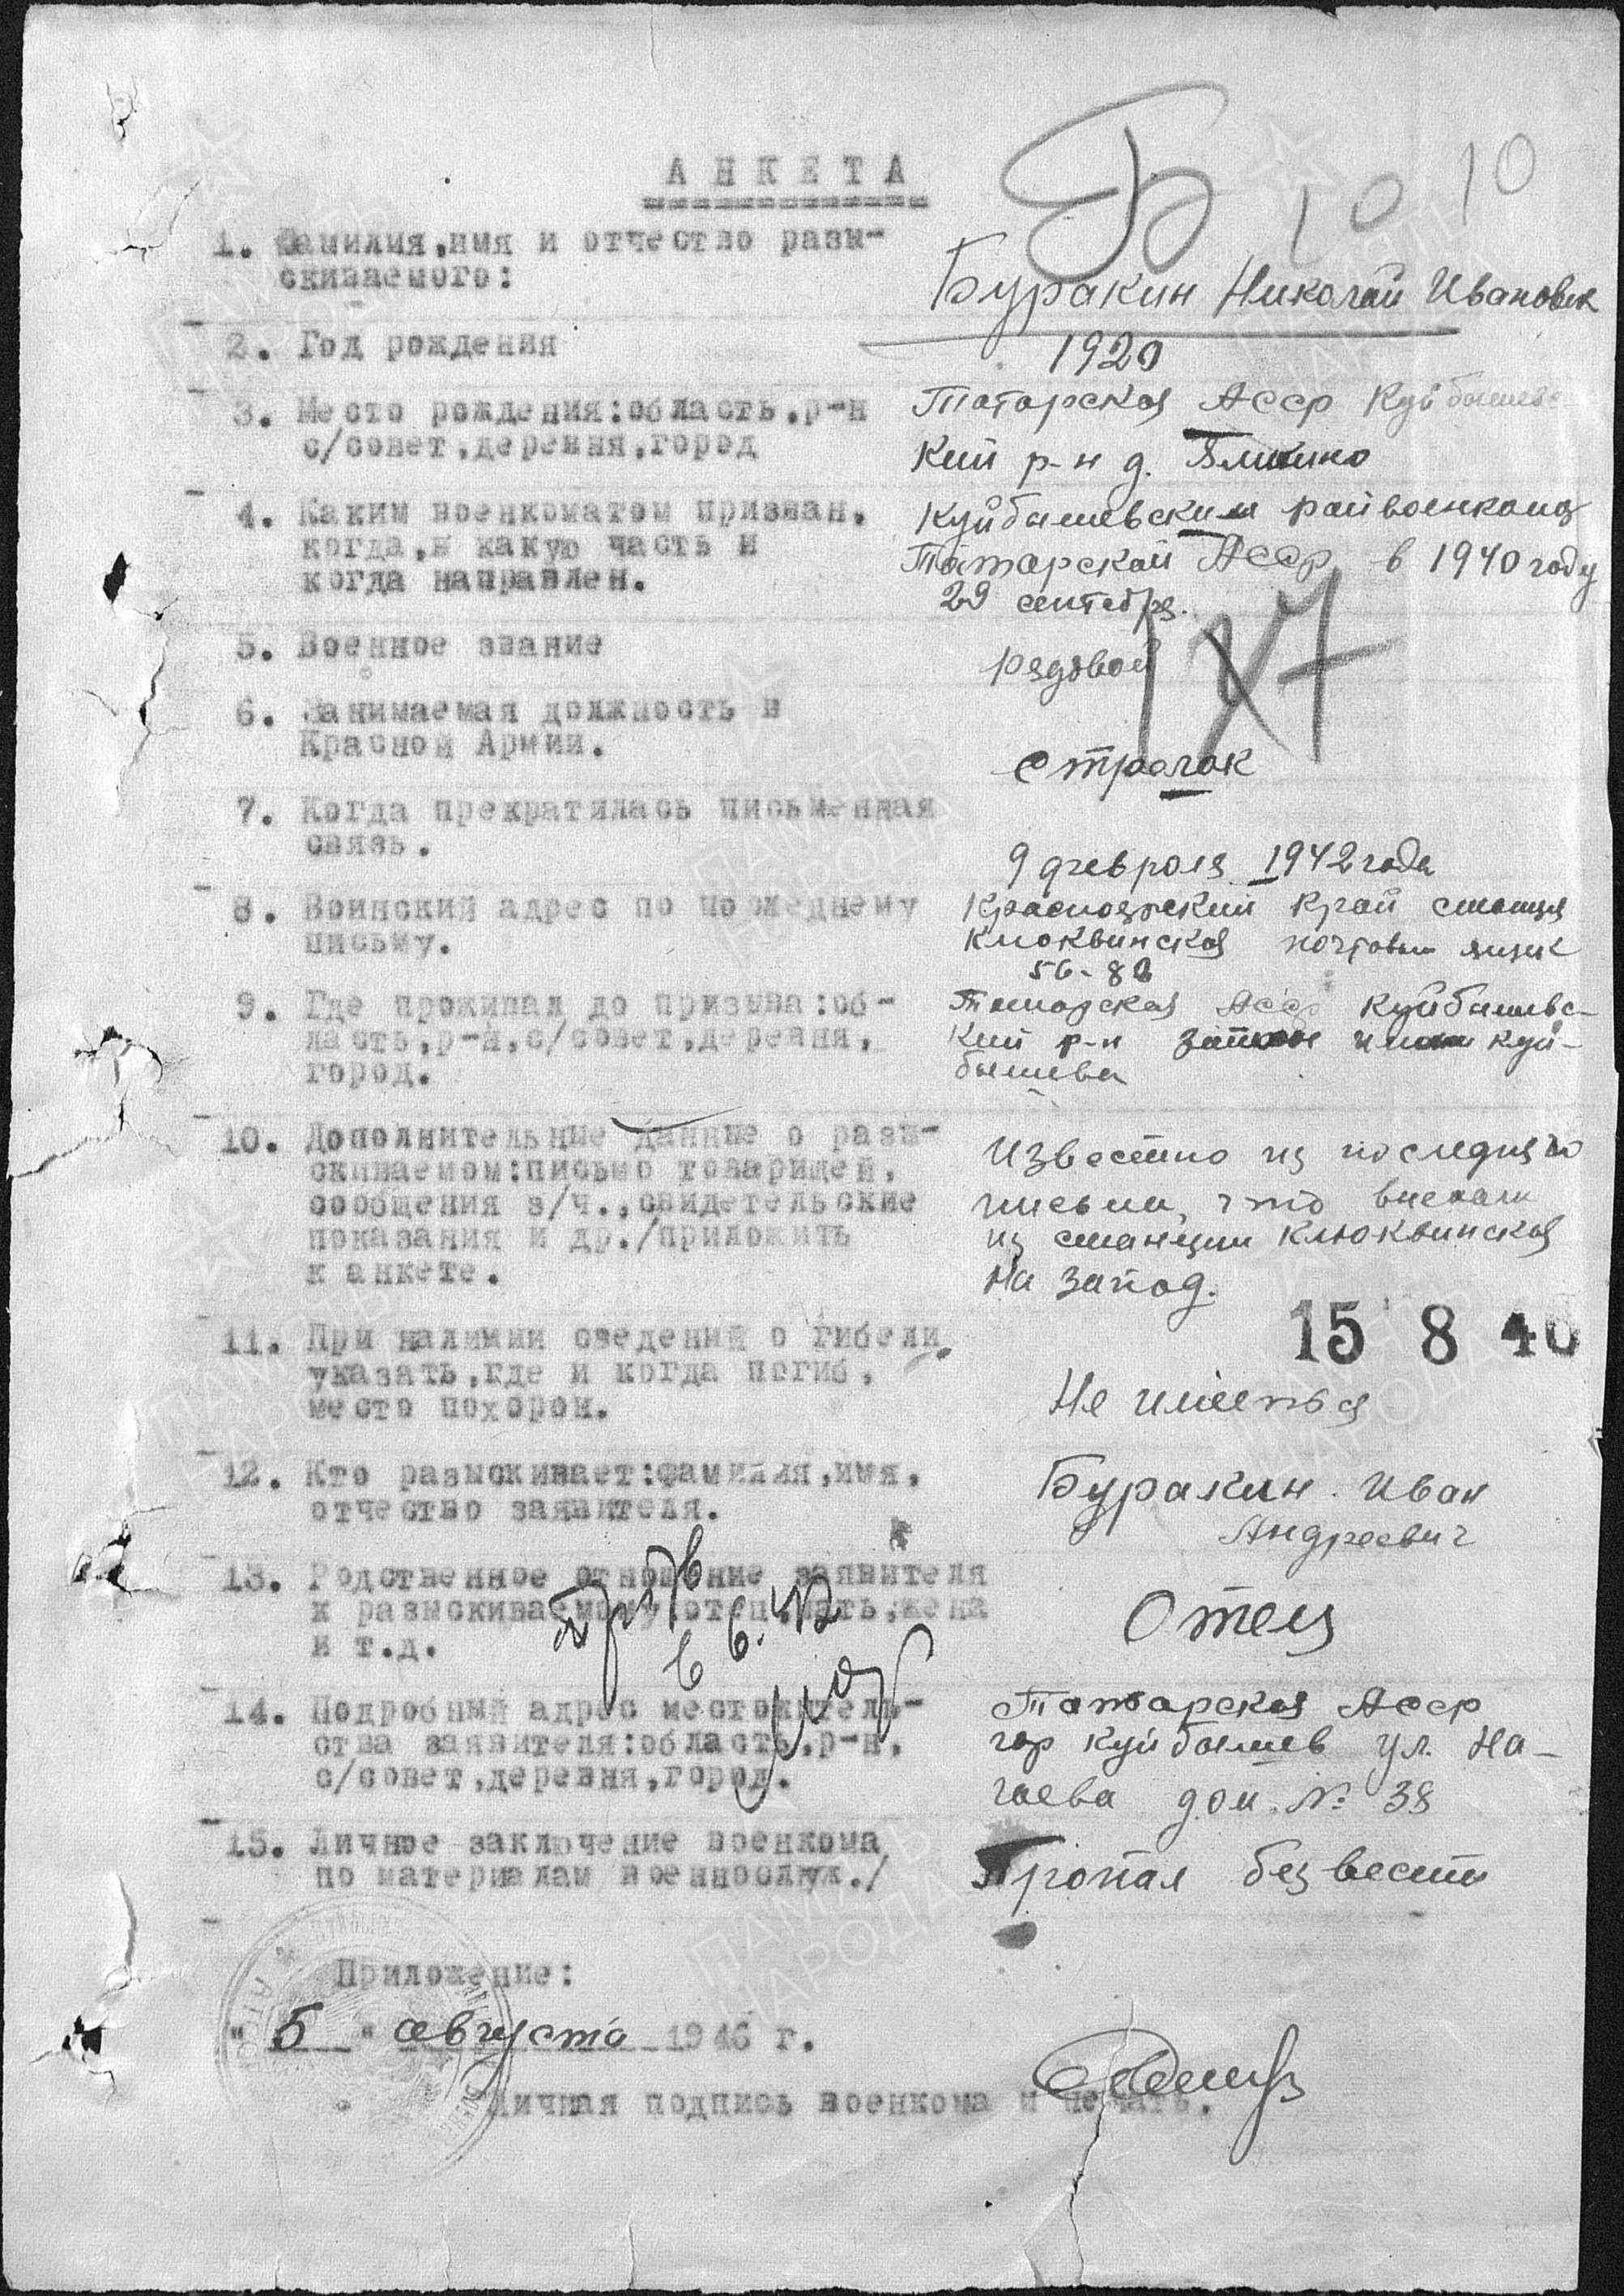 Б 10 10
АНКЕТА
1. Фамилия,имя и отчество разы-
скиваемого:
Буракин Николай Иванович
2. Год рождения
1920
3. Место рождения:область,р-н
с/совет,деревня,город
Татарская Асср Куйбышевс
кий р-н д.
4. Каким военкоматом призван,
когда,в какую часть и
когда направлен.
Куйбышевским райвоенкома
Татарской Асср в 1940 году
29 сентебря.
5. Военное звание
Рядовой
6. Занимаемая должность в
Красной Армии.
Стрелок
7. Когда прекратилась письменная
связь.
9 февраля 1942 года
8. Воинский адрес по последнему
письму.
Красноярский Край станция
Клюквинская почтовый ящик
56-
9. Где проживал до призыва:об-
ласть,р-н,с/совет,деревня,
город.
Татарская Асср Куйбышевс-
кий р-н затон имени Куй-
бышева
10. Дополнительные данные о разы-
скиваемом:письмо товарищей,
сообщения в/ч.,свидетельские
показания и др./приложить
к анкете.
Известно из последняго
письма, что выехали
из станции Клюквинская
на запад.
15 8 46
11. При наличии сведений о гибели
указать,где и когда погиб,
место похорон.
Не имеется
12. Кто разыскивает:фамилия,имя,
отчество заявителя.
Буракин Иван
Андреевич
13. Родственное отношение заявителя
к разыскиваемому:отец,мать,жена
и т.д.
Отец
14. Подробный адрес местожитель-
ства заявителя:область,р-н,
с/совет,деревня,город.
Татарская Асср
гор Куйбышев ул. На-
гаева дом. № 38
15. Личное заключение военкома
по материалам военнослуж./
Пропал без вести
Приложение:
"5" августа 1946 г.
Личная подпись военкома и печать.